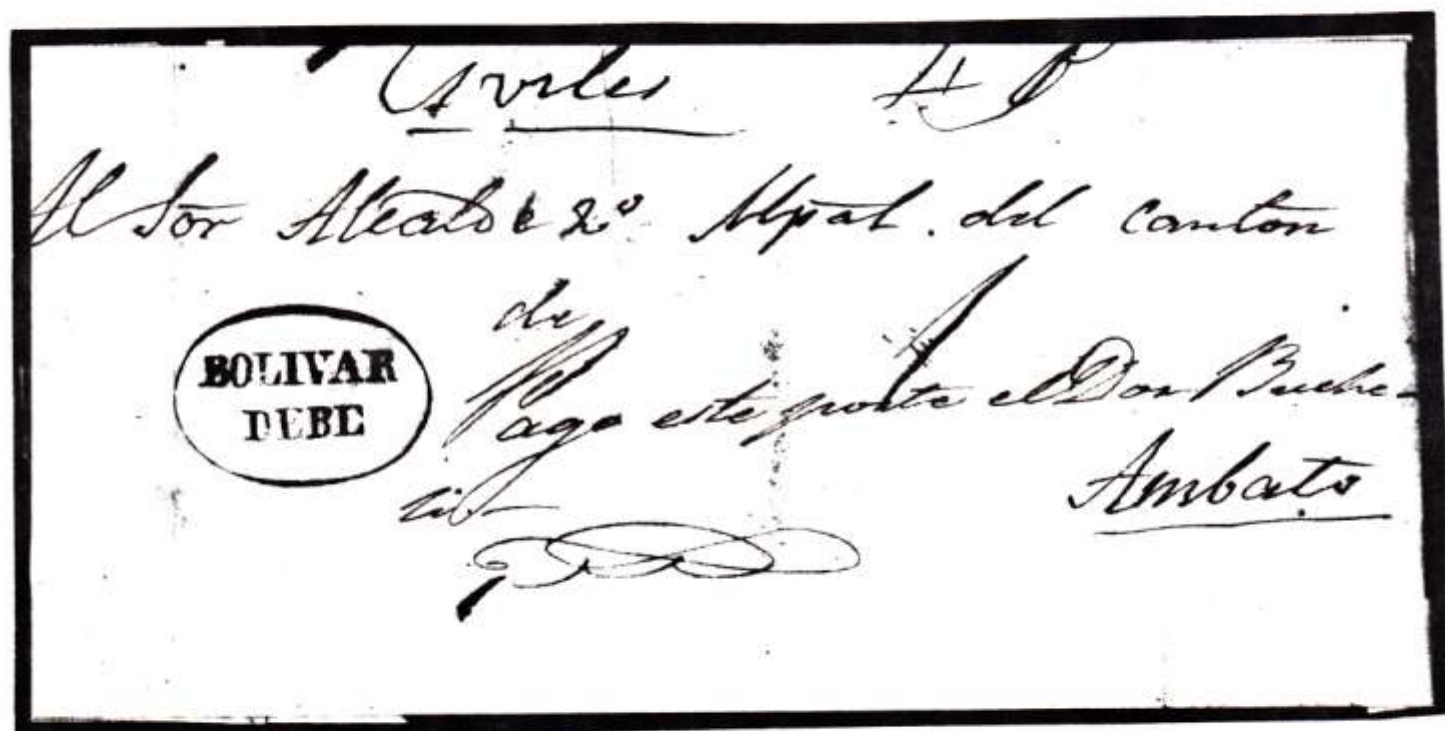 Civiles
Al Sor Alcalde 2º Mpal. del canton
de
BOLIVAR
DEBE
Paga este porte el Dor Buche-
li
Ambato